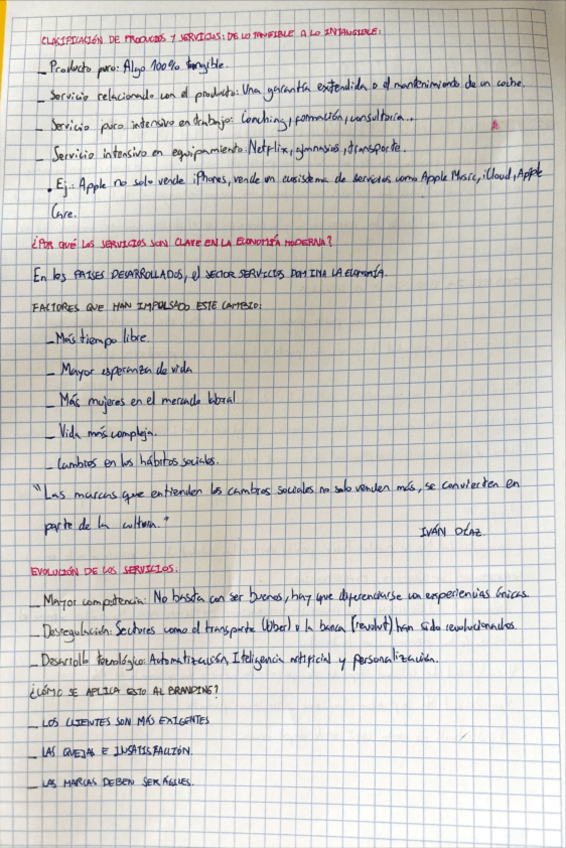 CLASIFICACIÓN DE PRODUCTOS Y SERVICIOS: DE LO TANGIBLE A LO INTANGIBLE:
_ Producto puro: Algo 100% tangible.
_ Servicio relacionado con el producto: Una garantía extendida o el mantenimiento de un coche.
_ Servicio puro intensivo en trabajo: Coaching, formación, consultoría...
_ Servicio intensivo en equipamiento: Netflix, gimnasios, transporte.
. Ej.: Apple no solo vende iPhones, vende un ecosistema de servicios como Apple Music, iCloud, Apple
Care.
¿POR QUÉ LOS SERVICIOS SON CLAVE EN LA ECONOMÍA MODERNA?
En los PAISES DESARROLLADOS, el SECTOR SERVICIOS DOMINA LA ECONOMÍA.
FACTORES QUE HAN IMPULSADO ESTE CAMBIO:
_ Más tiempo libre.
_ Mayor esperanza de vida
_ Más mujeres en el mercado laboral
_ Vida más compleja.
_ Cambios en los hábitos sociales.
"Las marcas que entienden los cambios sociales no solo venden más, se convierten en
parte de la cultura."
IVÁN DÍAZ
EVOLUCIÓN DE LOS SERVICIOS:
_ Mayor competencia: No basta con ser buenos, hay que diferenciarse con experiencias únicas.
_ Desregulación: Sectores como el transporte (Uber) o la banca (revolut) han sido revolucionados.
_ Desarrollo tecnológico: Automatización, Inteligencia artificial y personalización.
¿CÓMO SE APLICA ESTO AL BRANDING?
_ LOS CLIENTES SON MÁS EXIGENTES
_ LAS QUEJAS E INSATISFACCIÓN.
_ LAS MARCAS DEBEN SER ÁGILES.